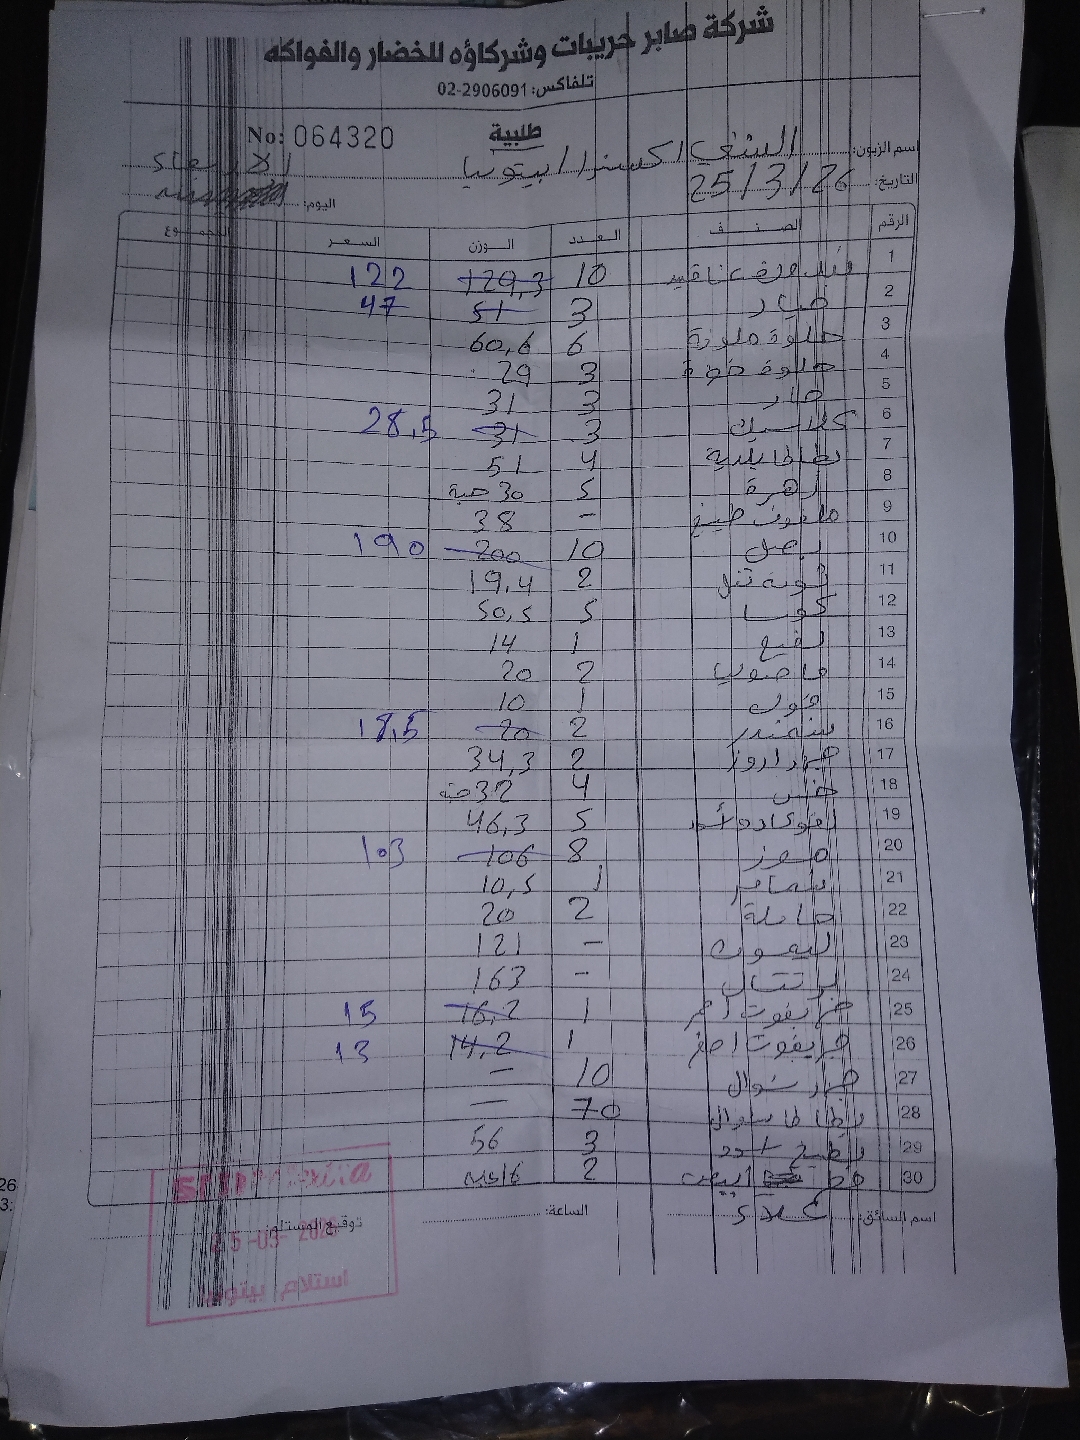 شركة صابر حريبات وشركاؤه للخضار والفواكه
تلفاكس: 02-2906091
No: 064320
طلبية
اسم الزبون: السني اكسترا / بيتونيا
الاربعاء
التاريخ: 25/3/26
اليوم:
الرقم الصنف العدد الوزن السعر المجموع
1 عناقيد 10 129,3 122
2 خيار 3 51 47
3 حلوة ملونة 6 60,6
4 حلوة 3 29
5 حار 3 31
6 كلاسيك 3 31 28,5
7 بطاطا بلدية 4 51
8 زهرة 5 30 حبة
9 ملفوف طبيخ - 38
10 بصل 10 200 190
11 2 19,4
12 كوسا 5 50,5
13 1 14
14 فاصوليا 2 20
15 فول 1 10
16 شمندر 2 20 18,5
17 2 34,3
18 خس 4 32 حبة
19 افوكادو 5 46,3
20 موز 8 106 103
21 1 10,5
22 2 20
23 ليمون - 121
24 برتقال - 163
25 جريفوت احمر 1 16,2 15
26 جريفوت اصفر 1 14,2 13
27 جزر شوال 10 —
28 بطاطا شوال 70 —
29 3 56
30 ابيض 2
اسم السائق:
الساعة:
توقيع المستلم:
استلام بيتونيا